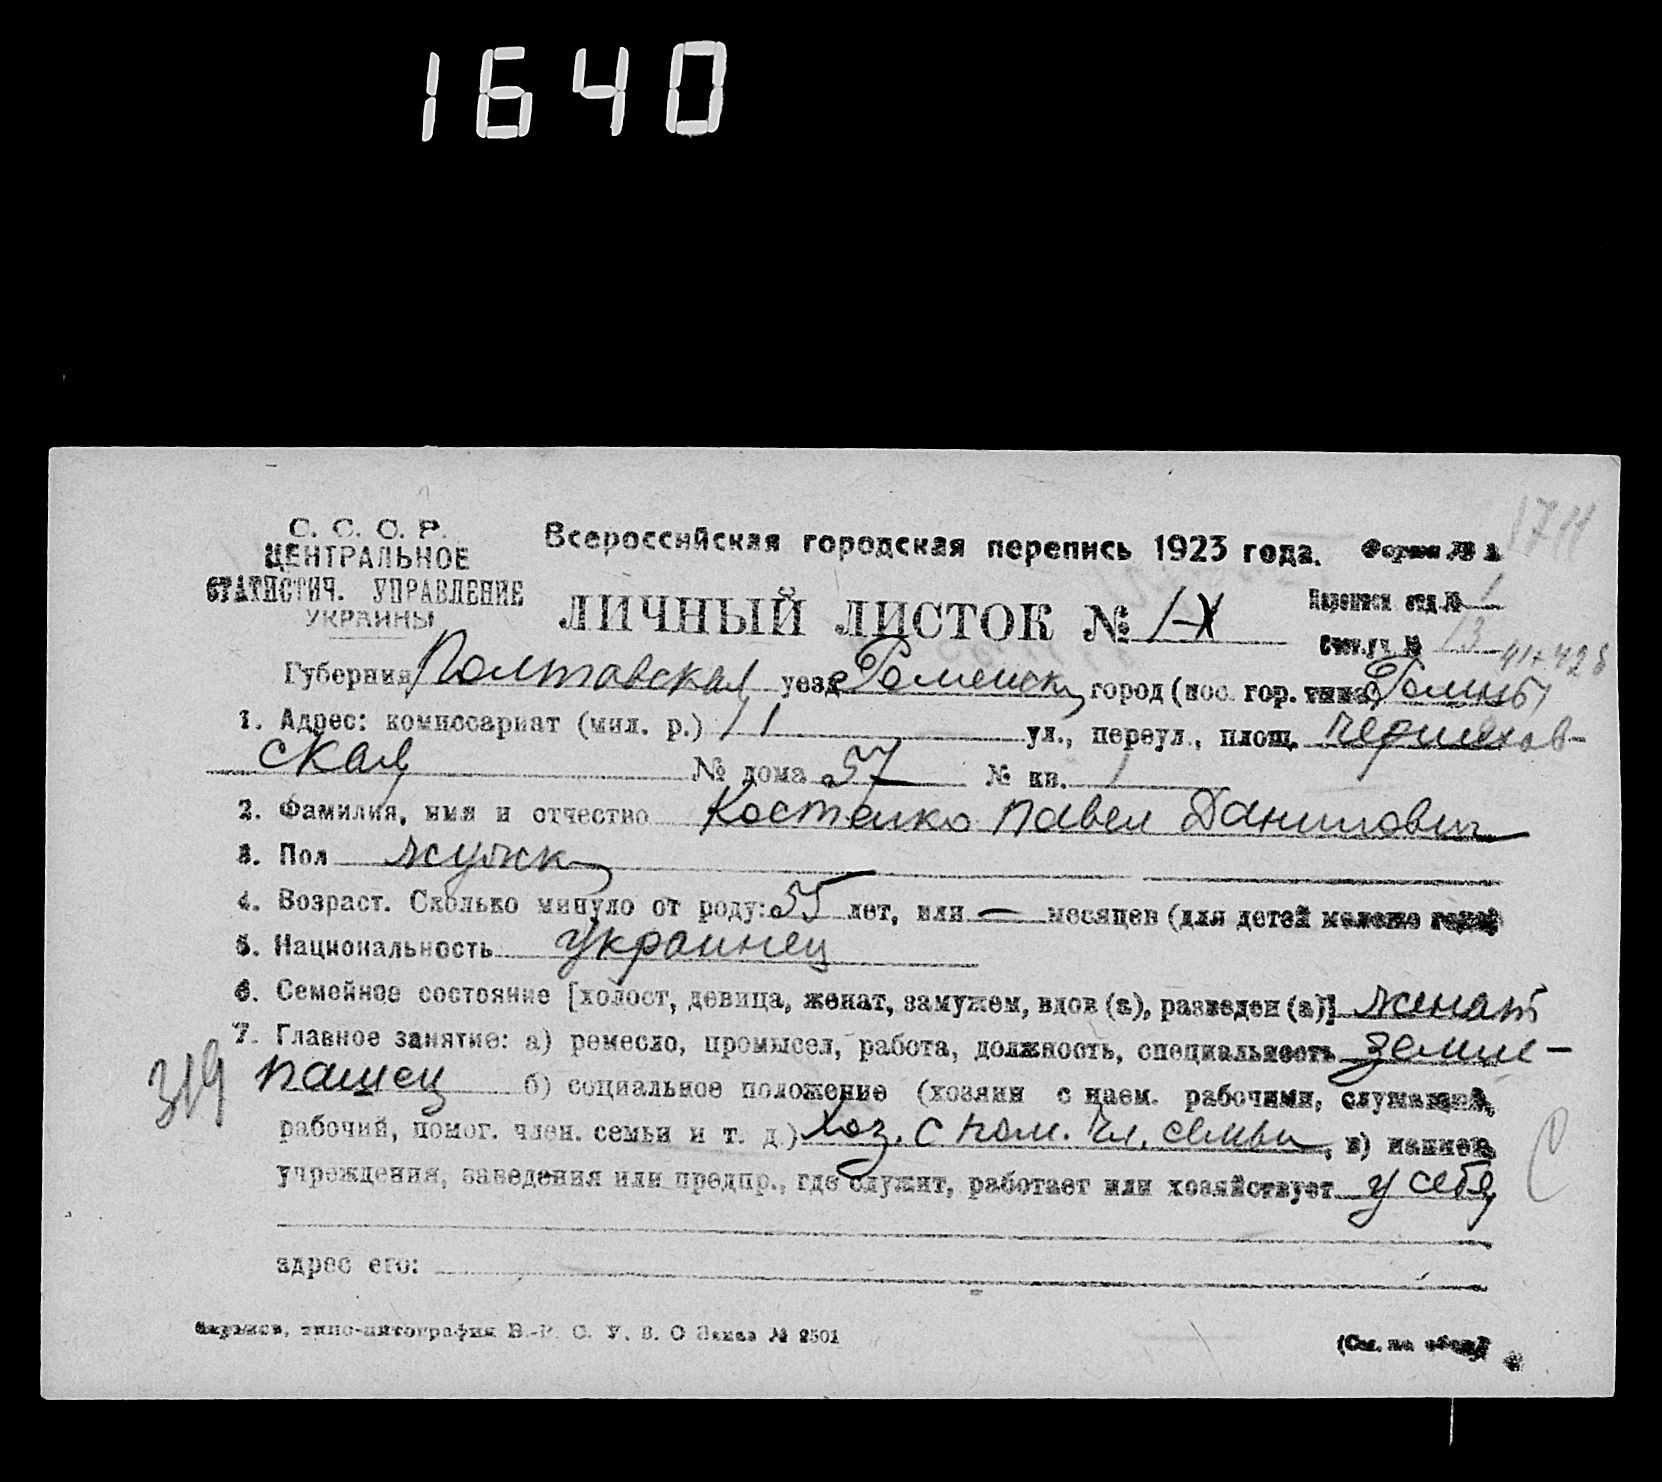 1640
1711
С. С. С. Р.
ЦЕНТРАЛЬНОЕ
СТАТИСТИЧ. УПРАВЛЕНИЕ
УКРАИНЫ
Всероссийская городская перепись 1923 года. Форма № 1
ЛИЧНЫЙ ЛИСТОК №
Переписн. отд. № 1
Счетн. уч. № 13
Губерния Полтавская уезд Роменск город (пос. гор. типа) Ромны
1. Адрес: комиссариат (мил. р.) ул., переул., площ.
ская № дома 57 № кв. 1
2. Фамилия, имя и отчество Костенко Павел Данилович
3. Пол мужск
4. Возраст. Сколько минуло от роду: 55 лет, или — месяцев (для детей моложе года)
5. Национальность украинец
6. Семейное состояние [холост, девица, женат, замужем, вдов (а), разведен (а)] женат
7. Главное занятие: а) ремесло, промысел, работа, должность, специальность земле-
319 пашец б) социальное положение (хозяин с наем. рабочими, служащий,
рабочий, помог. член. семьи и т. д.) Хоз. с пом. чл. семьи, в) наимен.
учреждения, заведения или предпр., где служит, работает или хозяйствует у себя
адрес его:
Харьков, типо-литография В.-У. С. У. З. О Заказ № 2501
(См. на обор.)